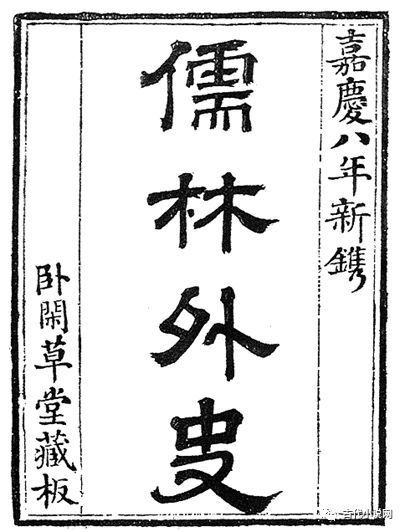 嘉慶八年新鐫
儒林外史
卧閑草堂藏板
古代小说网